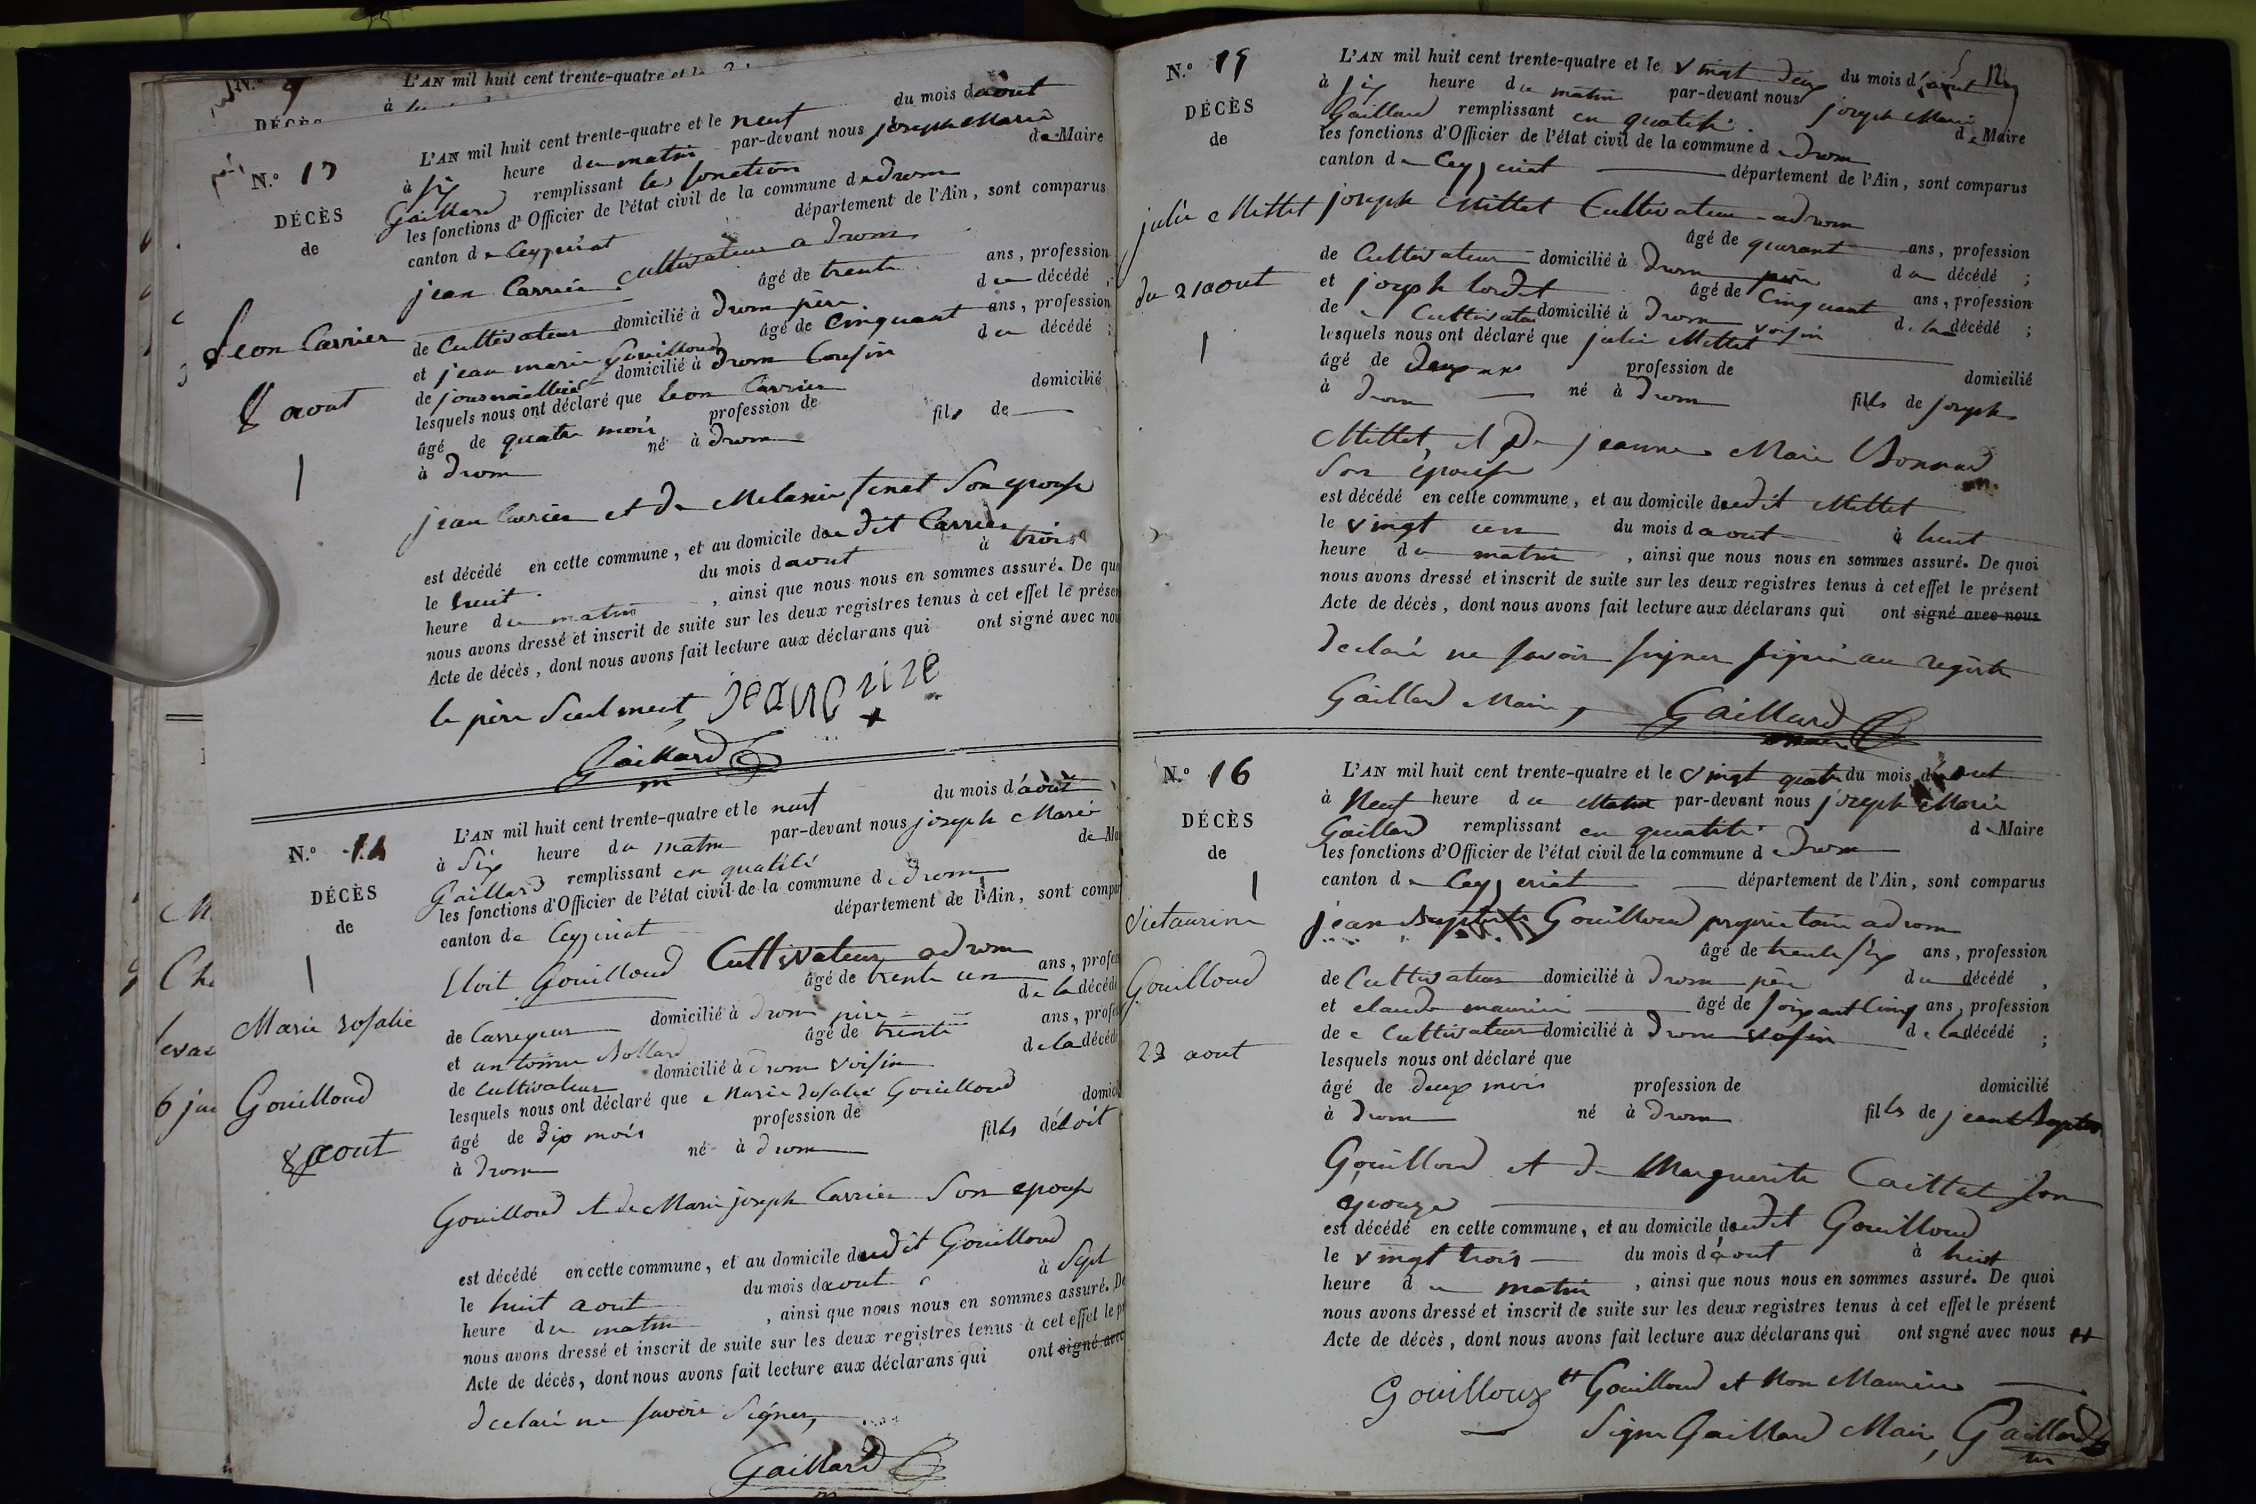 N.º 9
L'AN mil huit cent trente-quatre et le
à
DÉCÈS
N.º 13
DÉCÈS
de
Leon Carrier
8 aout
L'AN mil huit cent trente-quatre et le neuf du mois daout
à six heure du matin par-devant nous joseph Marie
Gaillard remplissant les fonction de Maire
les fonctions d'Officier de l'état civil de la commune d e drom
canton d e Ceyzeriat département de l'Ain, sont comparus
jean Carrier cultivateur a drom
âgé de trente ans, profession
de Cultivateur domicilié à drom père du décédé ;
et jean marie Gouilloud âgé de Cinquant ans, profession
de journaillier domicilié à drom Cousin du décédé ;
lesquels nous ont déclaré que Leon Carrier
âgé de quatre mois profession de domicilié
à drom né à drom fils de
jean Carrier et de Melanie Tenet Son epouse
est décédé en cette commune, et au domicile du dit Carrier
le huit du mois daout à trois
heure du matin, ainsi que nous nous en sommes assuré. De quoi
nous avons dressé et inscrit de suite sur les deux registres tenus à cet effet le présen
Acte de décès, dont nous avons fait lecture aux déclarans qui ont signé avec nou
le père Seulment,
Gaillard
m
N.º 14
DÉCÈS
de
Marie rosalie
Gouilloud
8 aout
L'AN mil huit cent trente-quatre et le neuf du mois d'août
à Six heure du matin par-devant nous joseph Marie
Gaillard remplissant en qualité de Ma
les fonctions d'Officier de l'état civil de la commune d e drom
canton de Ceyzeriat département de l'Ain, sont compar
Eloit Gouilloud Cultivateur a drom
âgé de trente un ans, profes
de Carreyeur domicilié à drom père de la décédé
et antoinne Nollard âgé de trente ans, profes
de Cultivateur domicilié à drom voisin de la décédé
lesquels nous ont déclaré que Marie Rosalie Gouilloud
âgé de dix mois profession de domici
à drom né à drom fills déloit
Gouilloud et de Marie joseph Carrier Son epouse
est décédé en cette commune, et au domicile dudit Gouilloud
le huit aout du mois daout à Sept
heure du matin, ainsi que nous nous en sommes assuré. De
nous avons dressé et inscrit de suite sur les deux registres tenus à cet effet le pr
Acte de décès, dont nous avons fait lecture aux déclarans qui ont signé avec
declaré ne savoir Signer,
Gaillard
m
N.º 15
DÉCÈS
de
julie Mettet
du 21 aout
12
L'AN mil huit cent trente-quatre et le vingt deux du mois d'aout
à six heure du matin par-devant nous joseph Marie
Gaillard remplissant en qualité de Maire
les fonctions d'Officier de l'état civil de la commune d e drom
canton d e Ceyzeriat département de l'Ain, sont comparus
joseph Mettet Cultivateur a drom
âgé de quarant ans, profession
de Cultivateur domicilié à drom père du décédé ;
et joseph âgé de Cinquant ans, profession
de Cultivateur domicilié à drom voisin de la décédé ;
lesquels nous ont déclaré que julie Mettet
âgé de deux ans profession de domicilié
à drom né à drom fills de joseph
Mettet, et de jeanne Marie Bonnard
Son épouse
est décédé en cette commune, et au domicile dudit Mettet
le vingt un du mois daout à huit
heure du matin, ainsi que nous nous en sommes assuré. De quoi
nous avons dressé et inscrit de suite sur les deux registres tenus à cet effet le présent
Acte de décès, dont nous avons fait lecture aux déclarans qui ont signé avec nous
declaré ne savoir signer signé au registre
Gaillard Maire, Gaillard
N.º 16
DÉCÈS
de
Victaurine
Gouilloud
23 aout
L'AN mil huit cent trente-quatre et le vingt quatre du mois daout
à Neuf heure du Matin par-devant nous joseph Marie
Gaillard remplissant en quallité de Maire
les fonctions d'Officier de l'état civil de la commune d e drom
canton d e Ceyzeriat département de l'Ain, sont comparus
jean Baptiste Gouilloud proprietaire a drom
âgé de trente six ans, profession
de Cultivateur domicilié à drom père du décédé ,
et claude maurin âgé de soixant Cinq ans, profession
de Cultivateur domicilié à drom voisin de la décédé ;
lesquels nous ont déclaré que
âgé de deux mois profession de domicilié
à drom né à drom fills de jean Baptiste
Gouilloud et de Marguerite Caillet son
epouze
est décédé en cette commune, et au domicile dudit Gouilloud
le vingt trois du mois d'aout à huit
heure du matin, ainsi que nous nous en sommes assuré. De quoi
nous avons dressé et inscrit de suite sur les deux registres tenus à cet effet le présent
Acte de décès, dont nous avons fait lecture aux déclarans qui ont signé avec nous
Gouilloux Gouilloud et Non Maurin
Signé Gaillard Maire, Gaillard
m